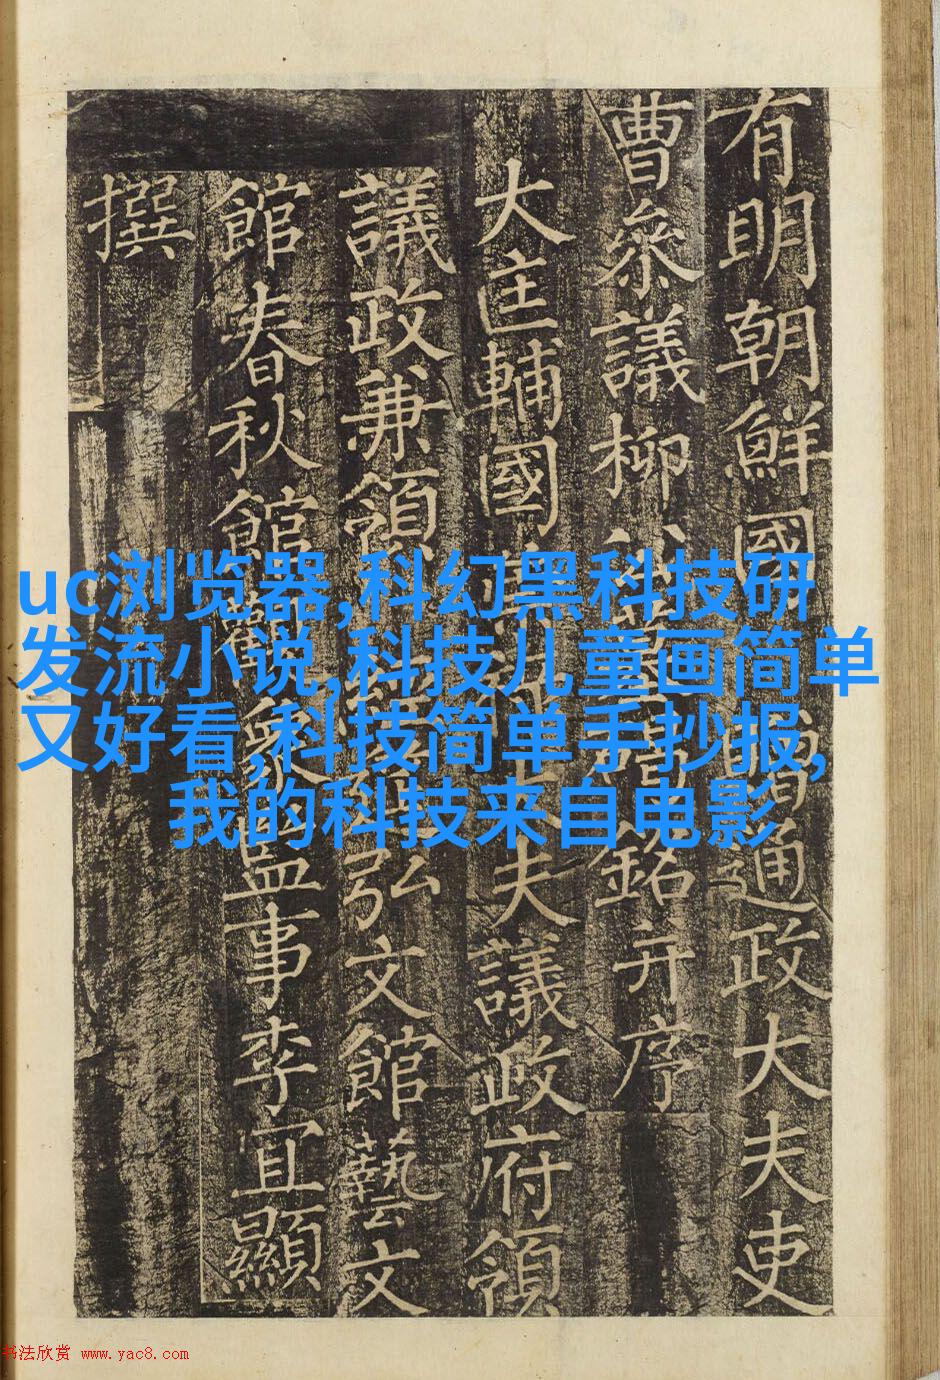 有明朝鮮國贈通政大夫吏
曹參議柳公墓碣銘并序
大匡輔國大夫議政府領
議政兼領弘文館藝文
館春秋館觀象監事李宜顯
撰
uc浏览器,科幻黑科技研
发流小说,科技儿童画简单
又好看,科技简单手抄报,
我的科技来自电影
书法欣赏 www.yac8.com